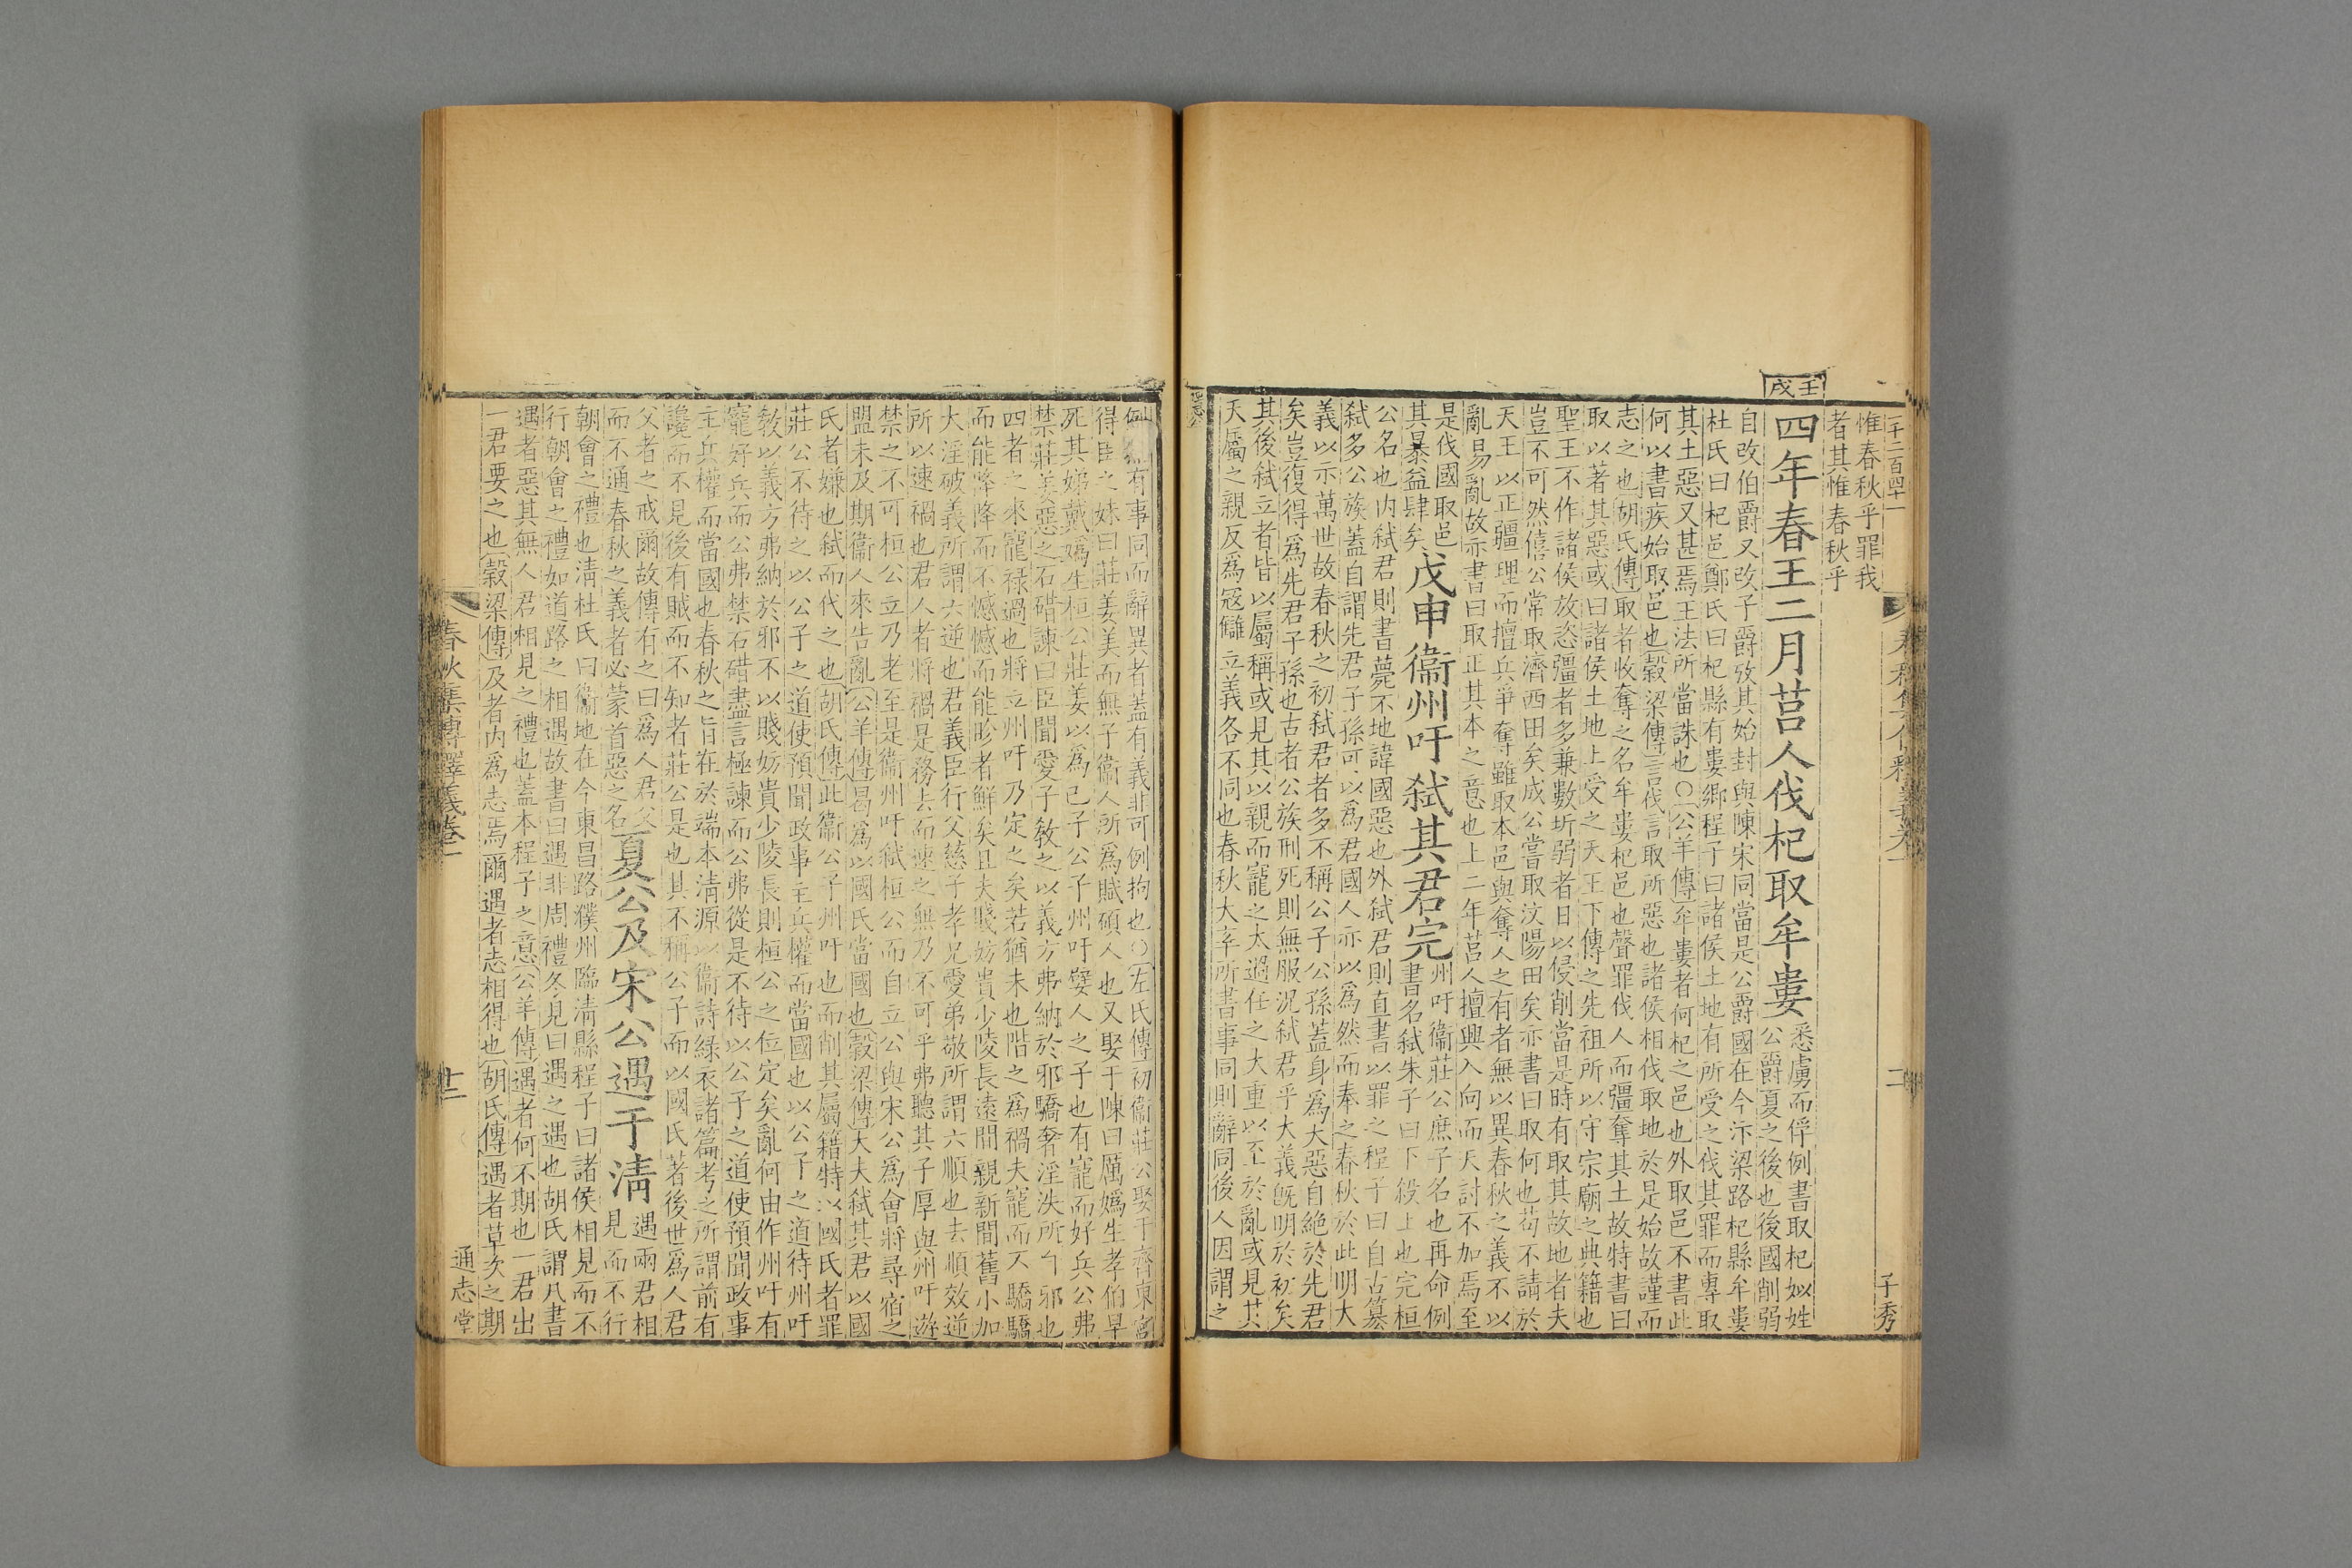 二千二百四十一
子秀
壬戌
惟春秋乎罪我
者其惟春秋乎
四年春王二月莒人伐杞取牟婁
悉虜而俘例書取杞姒姓
公爵夏之後也後國削弱
自改伯爵又改子爵攷其始封與陳宋同當是公爵國在今汴梁路杞縣牟婁
杜氏曰杞邑鄭氏曰杞縣有婁鄉程子曰諸侯土地有所受之伐其罪而專取
其土惡又甚焉王法所當誅也○公羊傳牟婁者何杞之邑也外取邑不書此
何以書疾始取邑也穀梁傳言伐言取所惡也諸侯相伐取地於是始故謹而
志之也胡氏傳取者收奪之名牟婁杞邑也聲罪伐人而彊奪其土故特書曰
取以著其惡或曰諸侯土地上受之天王下傳之先祖所以守宗廟之典籍也
聖王不作諸侯放恣彊者多兼數圻弱者日以侵削當是時有取其故地者夫
豈不可然僖公嘗取濟西田矣成公嘗取汶陽田矣亦書曰取何也苟不請於
天王以正疆理而擅兵爭奪雖取本邑與奪人之有者無以異春秋之義不以
亂易亂故亦書曰取正其本之意也上二年莒人擅興入向而天討不加焉至
是伐國取邑
其暴益肆矣
戊申衞州吁弑其君完
州吁衞莊公庶子名也再命例
書名弑朱子曰下殺上也完桓
公名也内弑君則書薨不地諱國惡也外弑君則直書以罪之程子曰自古簒
弑多公族蓋自謂先君子孫可以爲君國人亦以爲然而奉之春秋於此明大
義以示萬世故春秋之初弑君者多不稱公子公孫蓋身爲大惡自絶於先君
矣豈復得爲先君子孫也古者公族刑死則無服況弑君乎大義旣明於初矣
其後弑立者皆以屬稱或見其以親而寵之太過任之大重以至於亂或見其
天屬之親反爲冦讎立義各不同也春秋大率所書事同則辭同後人因謂之
例有事同而辭異者蓋有義非可例拘也○左氏傳初衞莊公娶于齊東宮
得臣之妹曰莊姜美而無子衞人所爲賦碩人也又娶于陳曰厲嬀生孝伯早
死其娣戴嬀生桓公莊姜以爲己子公子州吁嬖人之子也有寵而好兵公弗
禁莊姜惡之石碏諫曰臣聞愛子敎之以義方弗納於邪驕奢淫泆所自邪也
四者之來寵祿過也將立州吁乃定之矣若猶未也階之爲禍夫寵而不驕驕
而能降降而不憾憾而能眕者鮮矣且夫賤妨貴少陵長遠間親新間舊小加
大淫破義所謂六逆也君義臣行父慈子孝兄愛弟敬所謂六順也去順效逆
所以速禍也君人者將禍是務去而速之無乃不可乎弗聽其子厚與州吁遊
禁之不可桓公立乃老至是衞州吁弑桓公而自立公與宋公爲會將尋宿之
盟未及期衞人來告亂公羊傳曷爲以國氏當國也穀梁傳大夫弑其君以國
氏者嫌也弑而代之也胡氏傳此衞公子州吁也而削其屬籍特以國氏者罪
莊公不待之以公子之道使預聞政事主兵權而當國也以公子之道待州吁
敎以義方弗納於邪不以賤妨貴少陵長則桓公之位定矣亂何由作州吁有
寵好兵而公弗禁石碏盡言極諫而公弗從是不待以公子之道使預聞政事
主兵權而當國也春秋之旨在於端本淸源以衞詩綠衣諸篇考之所謂前有
讒而不見後有賊而不知者莊公是也其不稱公子而以國氏著後世爲人君
父者之戒爾故傳有之曰爲人君父
而不通春秋之義者必蒙首惡之名
夏公及宋公遇于淸
遇兩君相
見而不行
朝會之禮也淸杜氏曰衞地在今東昌路濮州臨淸縣程子曰諸侯相見而不
行朝會之禮如道路之相遇故書曰遇非周禮冬見曰遇之遇也胡氏謂凡書
遇者惡其無人君相見之禮也蓋本程子之意公羊傳遇者何不期也一君出
一君要之也穀梁傳及者内爲志焉爾遇者志相得也胡氏傳遇者草次之期
春秋集傳釋義卷一
十二
通志堂